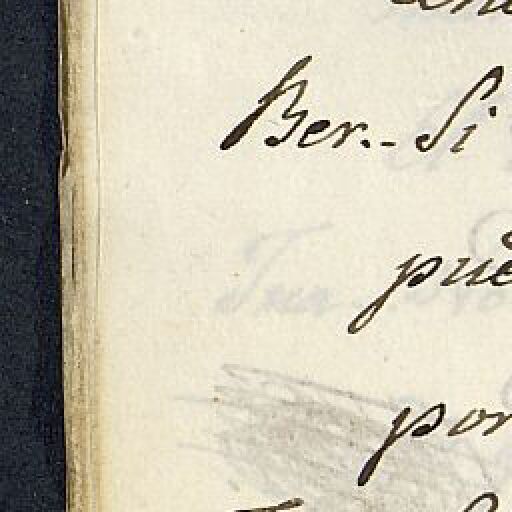 Ber.- Si
pue
por